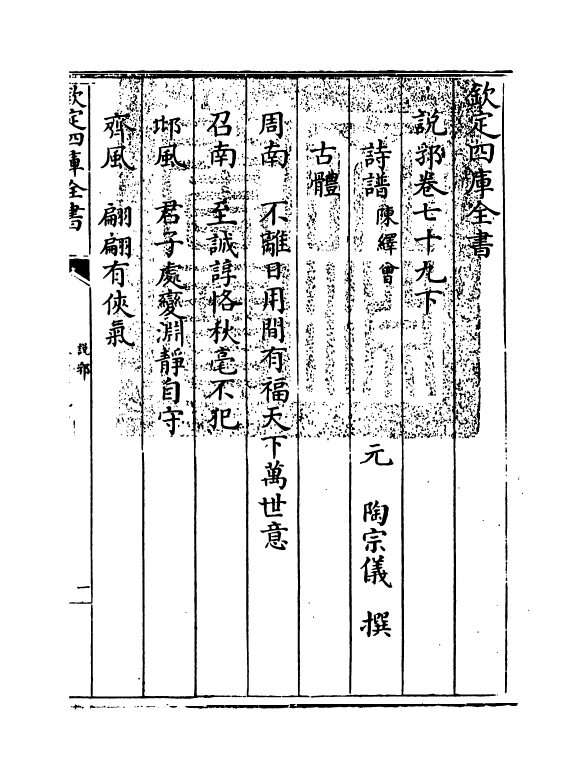 欽定四庫全書
說郛卷七十九下
元 陶宗儀 撰
詩譜 陳繹曾
古體
周南 不離日用間有福天下萬世意
召南 至誠諄恪秋毫不犯
邶風 君子處變淵靜自守
齊風 翩翩有俠氣
欽定四庫全書
說郛
一